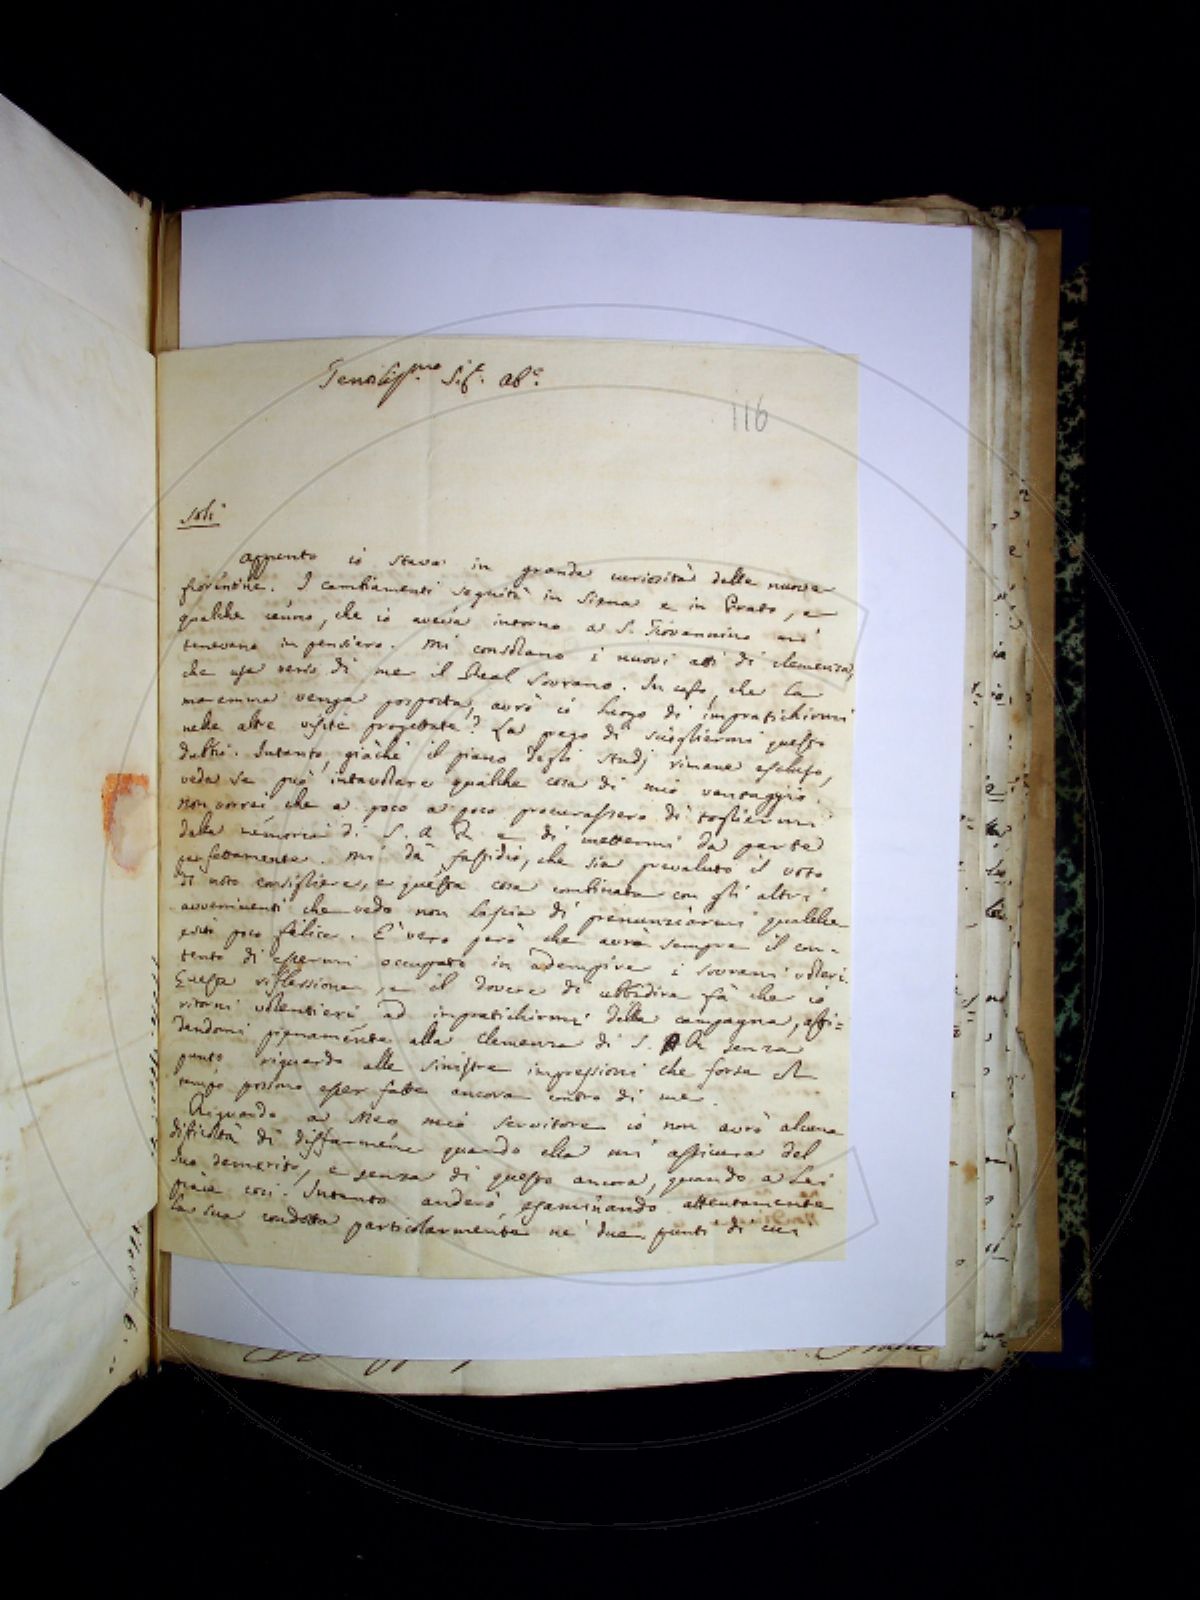 Gentiliss.mo Sig.r Ab.e
116
Soli
Appunto io stava in grande curiosità delle nuove
fiorentine. I cambiamenti seguiti in Siena e in Prato, e
qualche cenno, che io aveva intorno a S. Giovannino mi
tenevano in pensiero. Mi consolano i nuovi atti di clemenza,
che usa verso di me il Real Sovrano. In caso, che la
maremma venga posposta, avrò io luogo di impratichirmi
nelle altre visite progettate? La prego di sciogliermi questo
dubbio. Intanto, giacchè il piano degli studj rimane escluso,
veda se può intavolare qualche cosa di mio vantaggio.
Non vorrei che a poco a poco procurassero di togliermi
dalla memoria di S. A. R. e di mettermi da parte
perfettamente. Mi dà fastidio, che sia prevaluto il voto
di noto consigliere, e questa cosa combinata con gli altri
avvenimenti che vedo non lascia di prenunziarmi qualche
esito poco felice. E' vero però che avrò sempre il con-
tento di essermi occupato in adempire i sovrani voleri.
Questa riflessione, e il dovere di ubbidire fà che io
ritorni volentieri ad impratichirmi della campagna, affi=
dandomi pienamente alla clemenza di S. A R senza
punto riguardo alle sinistre impressioni che forse col
tempo possono esser fatte ancora contro di me.
Riguardo a Meo mio servitore io non avrò alcuna
dificoltà di disfarmene quando ella mi assicura del
suo demerito, e senza di questo ancora, quando a Lei
piaccia così. Intanto anderò esaminando attentamente
la sua condotta particolarmente ne' due punti di cui